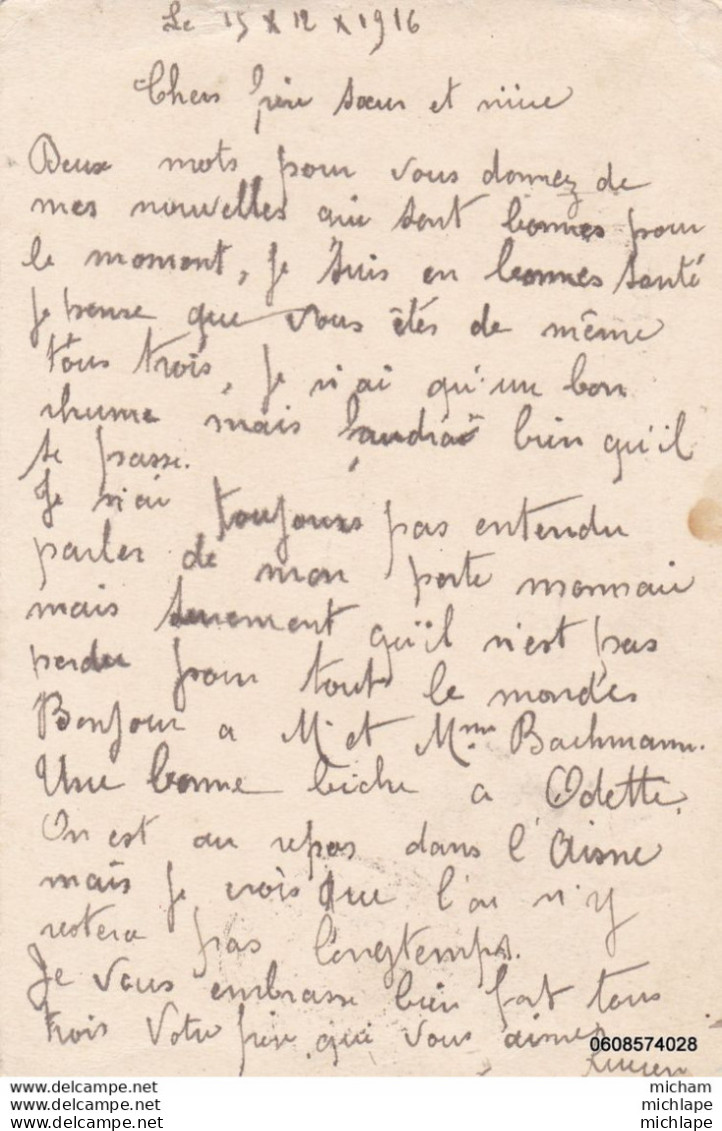 Le 15 X 12 X 1916
Chers frère sœur et nièce
Deux mots pour vous donnez de
mes nouvelles qui sont bonnes pour
le moment, je suis en bonnes santé
je pense que vous êtés de même
tous trois, je n'ai qu'un bon
rhume mais faudra bien qu'il
se passe.
Je n'ai toujours pas entendu
parler de mon porte monnaie
mais surement qu'il n'est pas
perdu pour tout le mondes
Bonjour a Mr et Mme Bachmann.
Une bonne biche a Odette.
On est au repos dans l'Aisne
mais je crois que l'on n'y
restera pas longtemps.
Je vous embrasse bien fort tous
trois Votre frère qui vous aimes
Lucien
0608574028
micham
michlape
michlape